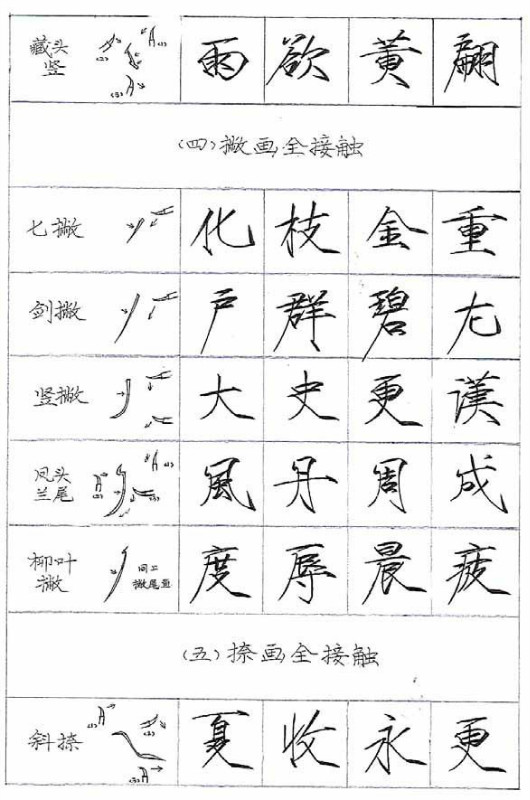 藏头竖 (1) (2) (3) 雨 欲 黄 翩
(四)撇画全接触
匕撇 化 枝 金 重
剑撇 户 群 碧 尤
竖撇 大 史 更 漢
凤头兰尾 風 丹 周 成
柳叶撇 同上撇尾重 度 辱 晨 疲
(五)捺画全接触
斜捺 (1) (2) (3) 夏 收 永 更